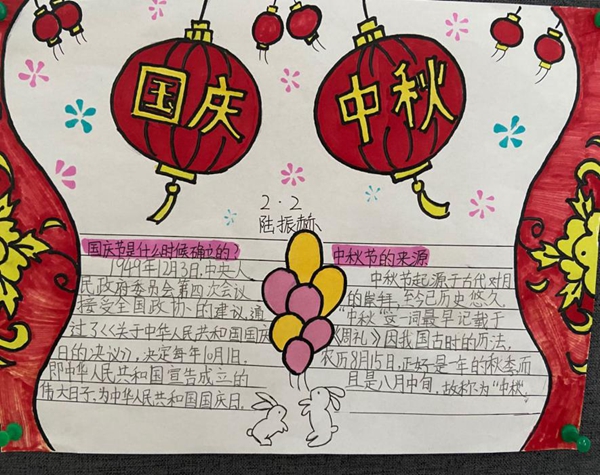 国庆
中秋
2·2
陆振赫
国庆节是什么时候确立的？
1949年12月3日,中央人
民政府委员会第四次会议
接受全国政协的建议,通
过了《关于中华人民共和国国庆
日的决议》,决定每年10月1日,
即中华人民共和国宣告成立的
伟大日子,为中华人民共和国国庆日.
中秋节的来源
中秋节起源于古代对月
的崇拜,至今已历史悠久.
"中秋"这一词最早记载于
《周礼》因我国古时的历法,
农历8月15日,正好是一年的秋季而
且是八月中旬,故称为"中秋".